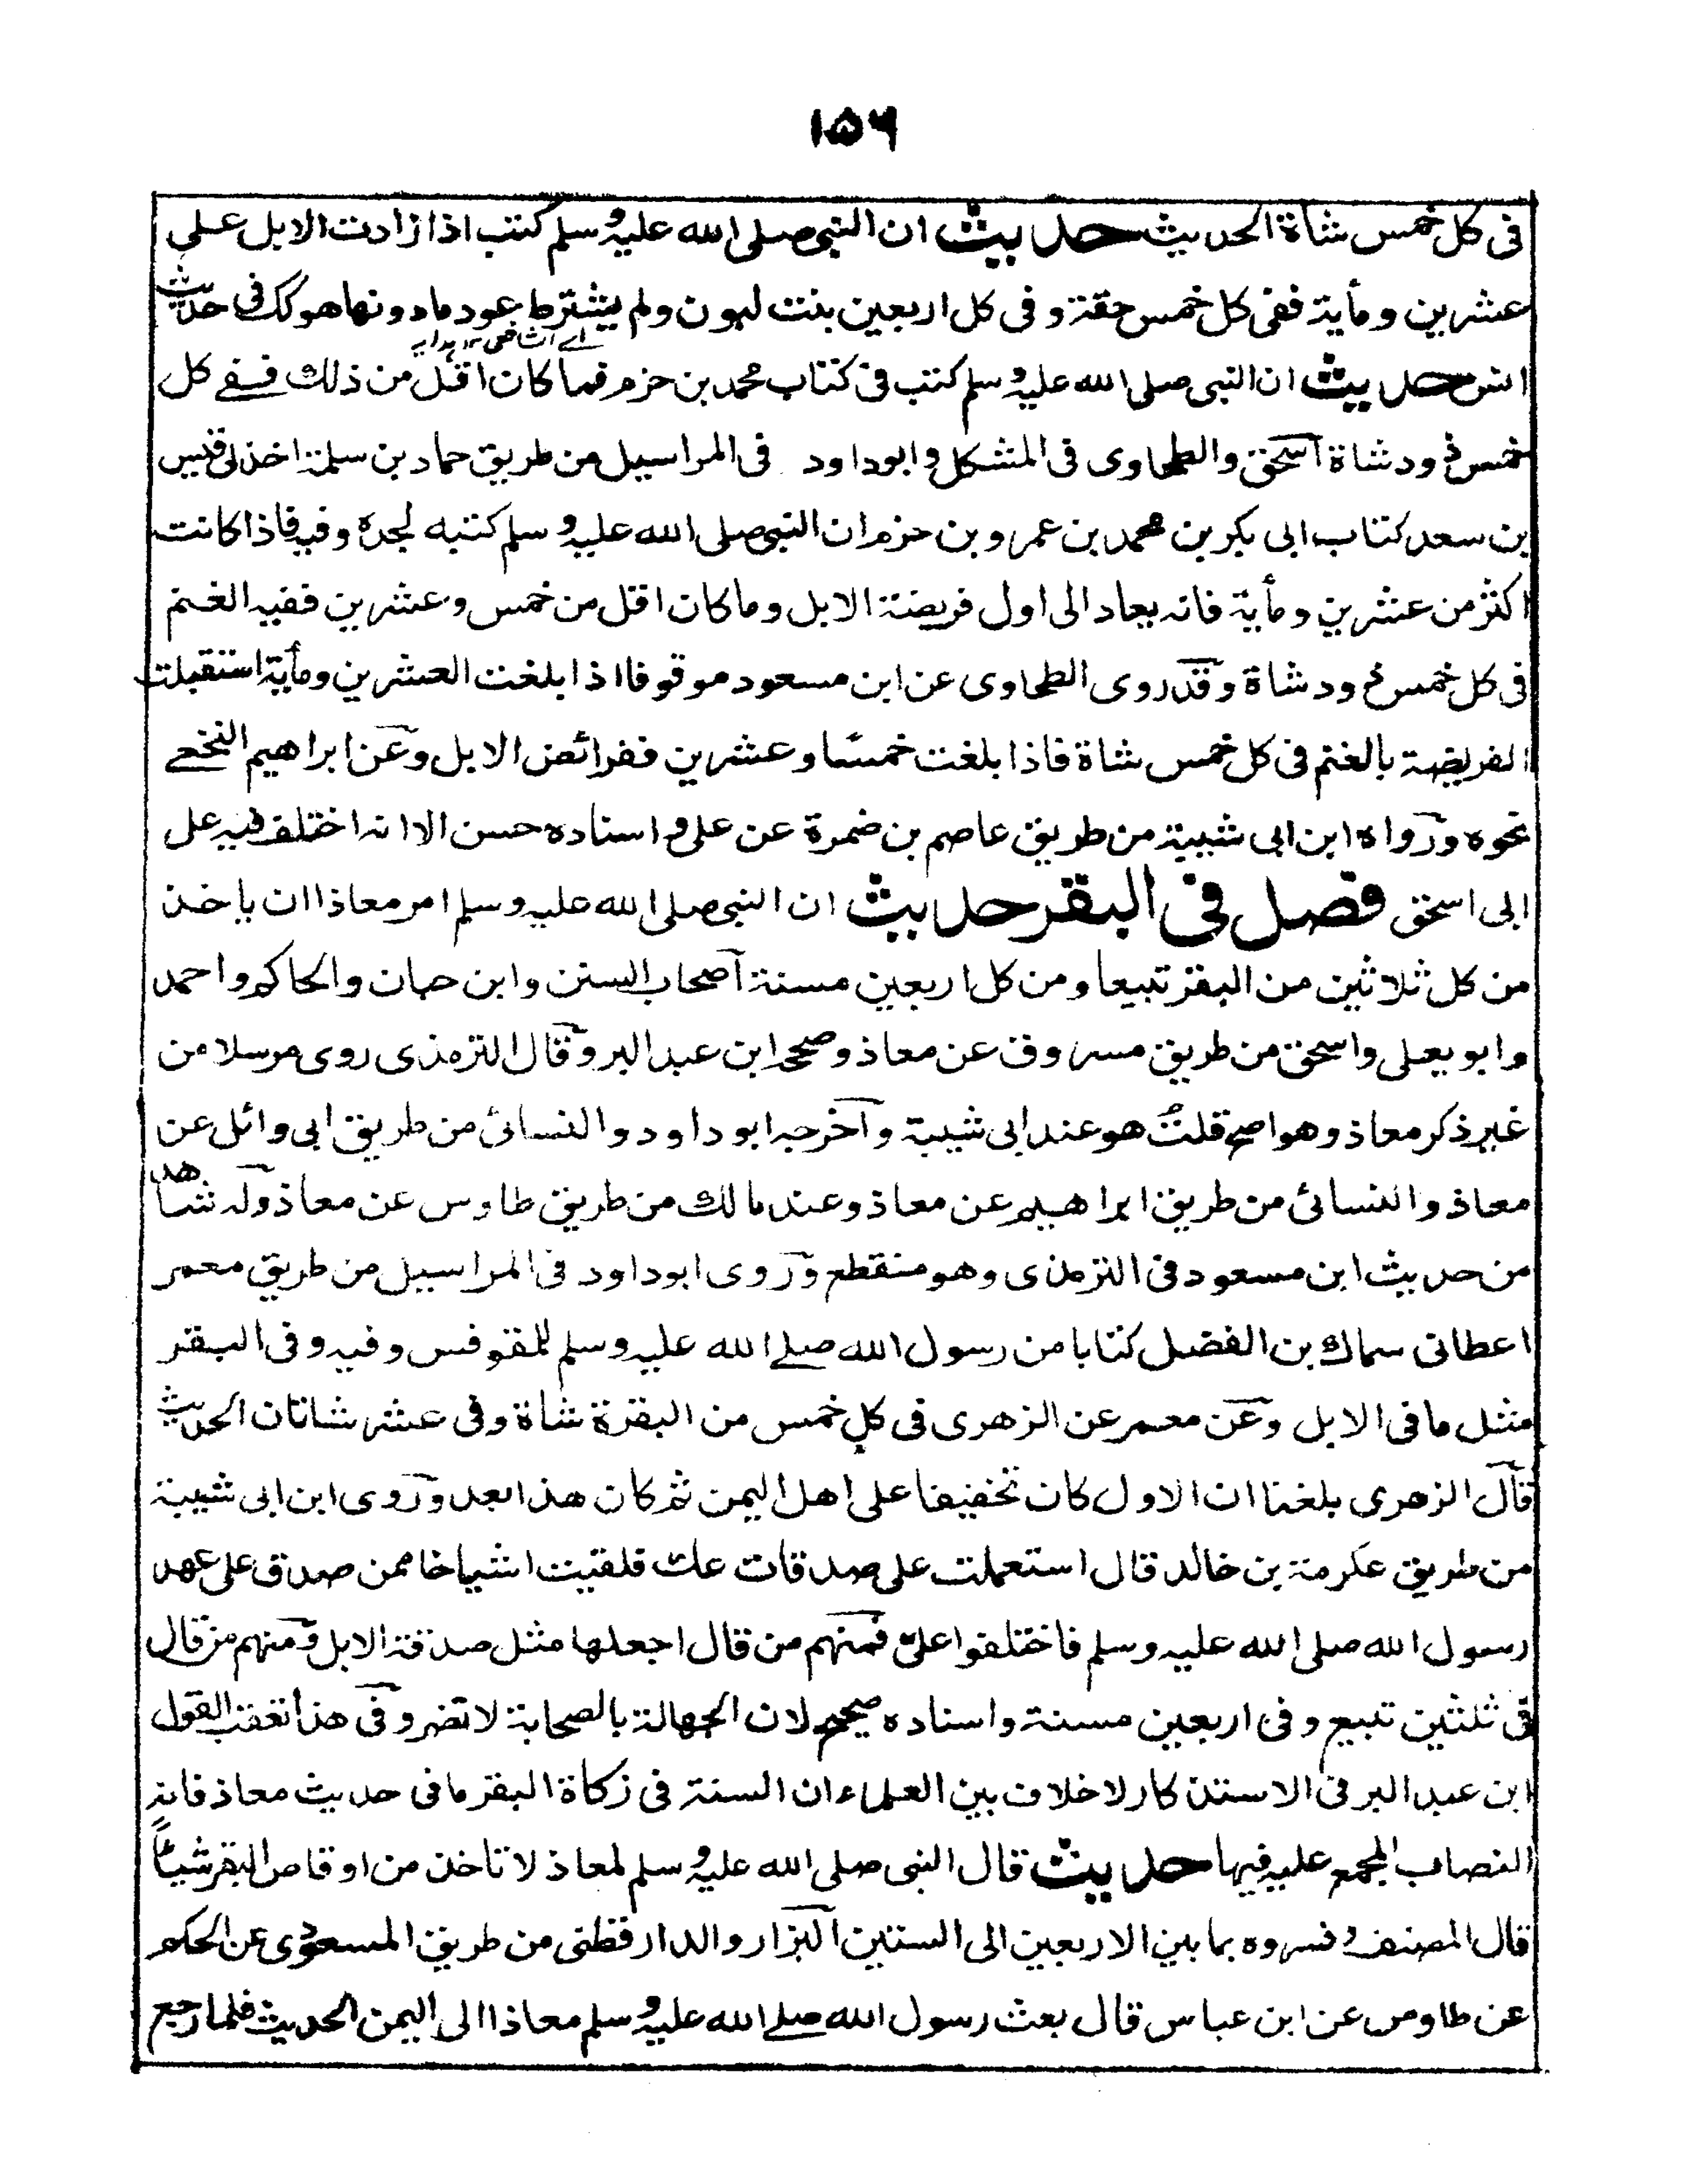 ١٥٦
فی کل خمس شاة الحدیث حدیث ان النبی صلی الله علیه و سلم کتب اذا زادت الابل علی
عشرین و مأیة ففی کل خمس حقة و فی کل اربعین بنت لبون و لم یشترط عود ما دونها هو کک فی حدیث
اے الشافعی ١٢ هدایه
انس حدیث ان النبی صلی الله علیه و سلم کتب فی کتاب محمد بن حزم فما کان اقل من ذلك ففے کل
خمس ذود شاة اسحق والطحاوی فی المشکل وابوداود فی المراسیل من طریق حماد بن سلمة اخذ لی قیس
بن سعد کتاب ابی بکر بن محمد بن عمرو بن حزم ان النبی صلی الله علیه و سلم کتبه لجده وفیه فاذا کانت
اکثر من عشرین و مأیة فانه یعاد الی اول فریضة الابل وما کان اقل من خمس و عشرین ففیه الغنم
فی کل خمس ذود شاة وقد روی الطحاوی عن ابن مسعود موقوفا اذا بلغت العشرین ومأیة استقبلت
الفریضة بالغنم فی کل خمس شاة فاذا بلغت خمسا و عشرین ففرائض الابل وعن ابراهیم النخعے
نحوه ورواه ابن ابی شیبة من طریق عاصم بن ضمرة عن علی و اسناده حسن الا انه اختلف فیه علی
ابی اسحق فصل فی البقر حدیث ان النبی صلی الله علیه وسلم امر معاذا ان یاخذ
من کل ثلاثین من البقر تبیعا ومن کل اربعین مسنة اصحاب السنن وابن حبان والحاکم واحمد
وابو یعلی واسحق من طریق مسروق عن معاذ وصححه ابن عبدالبر وقال الترمذی روی مرسلا من
غیر ذکر معاذ وهو اصح قلت هو عند ابی شیبة واخرجه ابو داود والنسائی من طریق ابی وائل عن
معاذ والنسائی من طریق ابراهیم عن معاذ وعند مالك من طریق طاوس عن معاذ وله شاهد
من حدیث ابن مسعود فی الترمذی وهو منقطع وروی ابوداود فی المراسیل من طریق معمر
اعطانی سماك بن الفضل کتابا من رسول الله صلے الله علیه وسلم للمقوقس وفیه وفی البقر
مثل ما فی الابل وعن معمر عن الزهری فی کل خمس من البقرة شاة وفی عشر شاتان الحدیث
قال الزهری بلغنا ان الاول کان تخفیفا علی اهل الیمن ثم کان هذا بعد وروی ابن ابی شیبة
من طریق عکرمة بن خالد قال استعملت علی صدقات عك فلقیت اشیاخا ممن صدق علی عهد
رسول الله صلی الله علیه وسلم فاختلفوا علی فمنهم من قال اجعلها مثل صدقة الابل ومنهم من قال
فی ثلثین تبیع وفی اربعین مسنة واسناده صحیح لان الجهالة بالصحابة لا تضر وفی هذا تعقب القول
ابن عبدالبر فی الاستذکار لا خلاف بین العلماء ان السنة فی زکاة البقر ما فی حدیث معاذ فانه
النصاب المجمع علیه فیها حدیث قال النبی صلی الله علیه و سلم لمعاذ لا تاخذ من اوقاص البقر شیئاً
قال المصنف و فسروه بما بین الاربعین الی الستین البزار والدارقطنی من طریق المسعودی عن الحکم
عن طاوس عن ابن عباس قال بعث رسول الله صلے الله علیه و سلم معاذا الی الیمن الحدیث فلما رجع